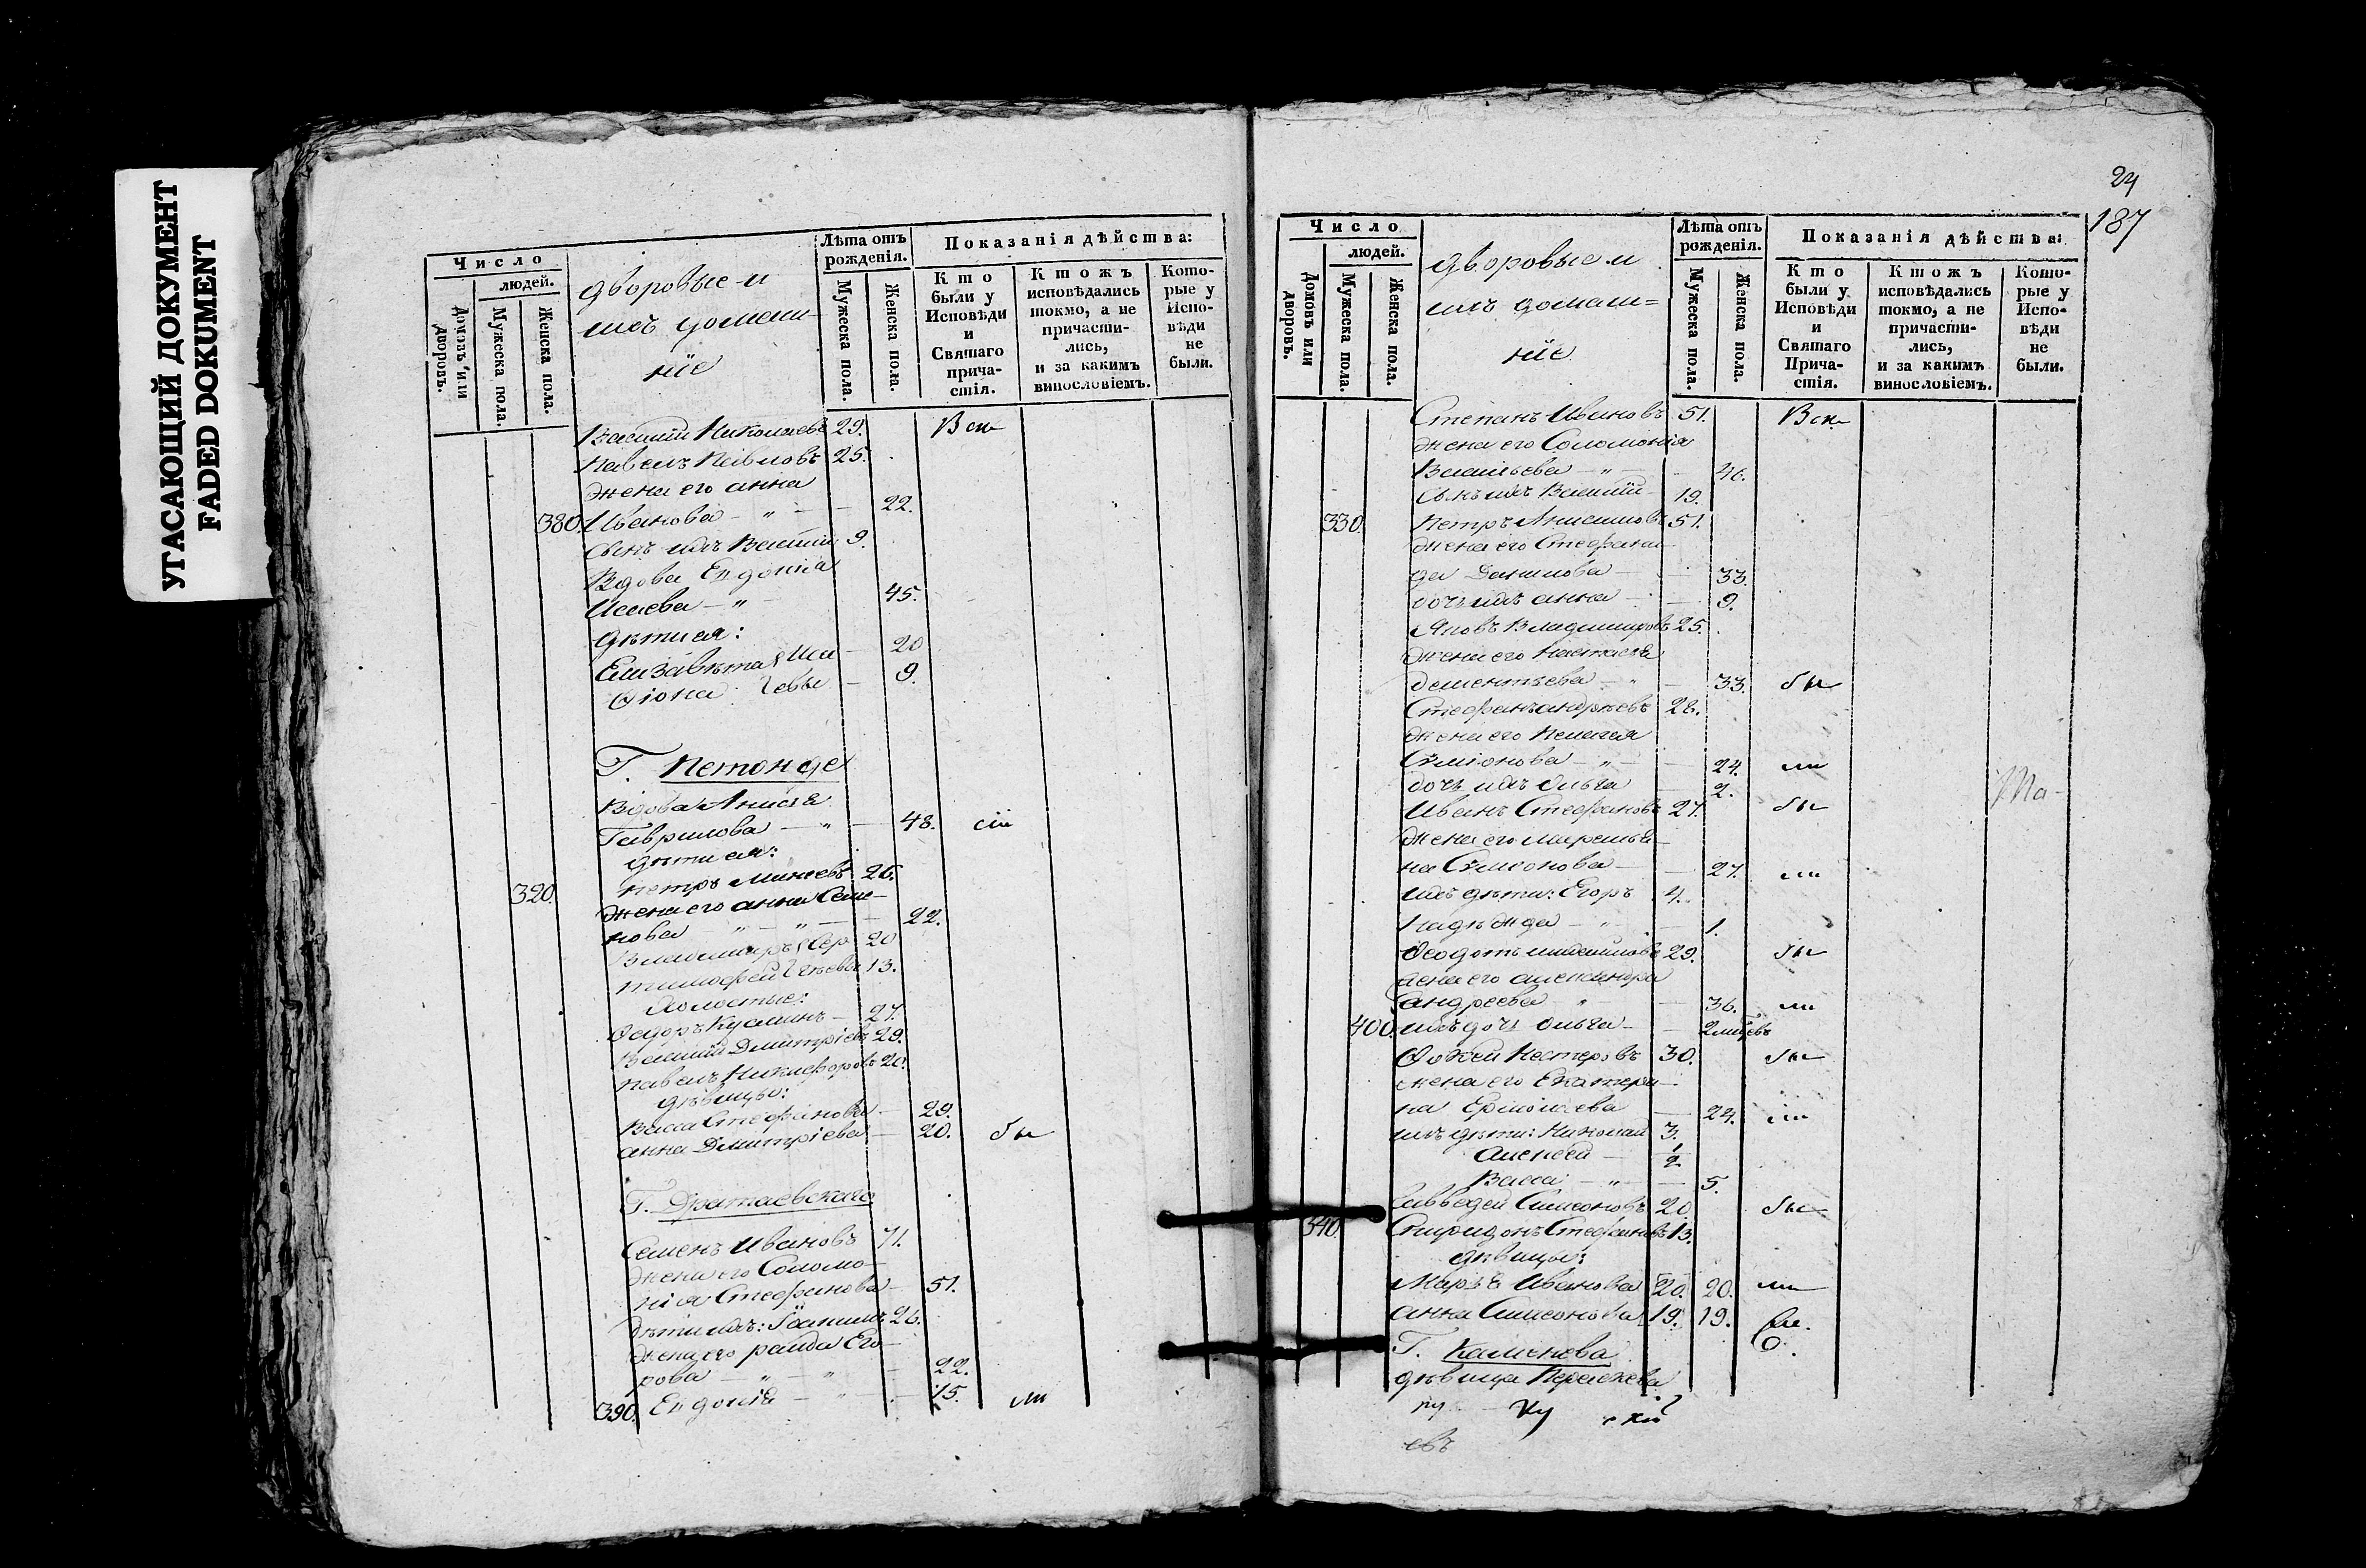 УГАСАЮЩИЙ ДОКУМЕНТ
FADED DOKUMENT
Число
людей.
Домовъ или дворовъ.
Мужеска пола.
Женска пола.
дворовые и
ихъ домаш-
ніе
Лѣта отъ рожденія.
Мужеска пола.
Женска пола.
Показанія дѣйства:
Кто были у Исповѣди и Святаго причастія.
Ктожъ исповѣдались токмо, а не причастились, и за какимъ винословіемъ.
Которые у Исповѣди не были.
Василій Николаевъ 29.
Павелъ Павловъ 25.
жена его анна
380. Иванова — " — 22.
сынъ ихъ Василій 9.
Вдова Евдокіа
Исаева — " — 45.
дѣти ея:
Елизавѣта Иса 20
Фіона евы 9.
Г. Петонде
Вдова Анисья
Гаврилова — " — 48.
дѣти ея:
Петръ 26.
320.
жена его анна Семе-
нова — " — " — 22.
Владимиръ Сер 20
тимофей гѣевы 13.
Холостые:
Федоръ Кузминъ — 27.
Василій Дмитріевъ 29.
Павелъ Никифоровъ 20.
дѣвицы:
Васса Стефанова — 29.
анна Дмитріева — 20. бы
Г.
Семенъ Ивановъ 71.
жена его Соломо-
ніа Стефанова — 51.
дѣти ихъ: 26.
жена его раида Его-
рова — " — " — 22.
390. Евдокіа — " — 15. ли
24
187
Число
людей.
Домовъ или дворовъ.
Мужеска пола.
Женска пола.
дворовые и
ихъ домаш=
ніе
Лѣта отъ рожденія.
Мужеска пола.
Женска пола.
Показанія дѣйства:
Кто были у Исповѣди и Святаго Причастія.
Ктожъ исповѣдались токмо, а не причастились, и за какимъ винословіемъ.
Которые у Исповѣди не были.
Степанъ Ивановъ 51.
жена его Соломоніа
Васильева — " — 40.
сынъ ихъ Василій 19.
330. Петръ Анисимовъ 51.
жена его Стефани-
да Данилова — 33.
дочь ихъ анна — 9.
Яковъ Владимировъ 25.
жена его Настасья
дементьева — " — 33. бы
Стефанъ андрѣевъ 28.
жена его Пелагея
Симіонова — " — 24. ли
дочь ихъ Ольга 2.
Иванъ Стефановъ 27. бы
жена его Маремья-
на Симеонова — 27. ли
ихъ дѣти: Егоръ 4.
Надѣжда — " — 1.
Феодотъ 29. бы
жена его александра
андреева — " — 36. ли
400. ихъ дочь Ольга — 2
Фокей Нестеровъ 30. бы
жена его Екатери-
на Ермолаева — 24. ли
ихъ дѣти: Николай 3.
Алексей — 1/2
Васса — " — 5.
Симеоновъ 20. бы
340. Спиридонъ Стефановъ 13.
дѣвицы:
Марья Иванова 20. 20. ли
анна Симеонова 19. 19.
Г. Каменева
дѣвица
евъ